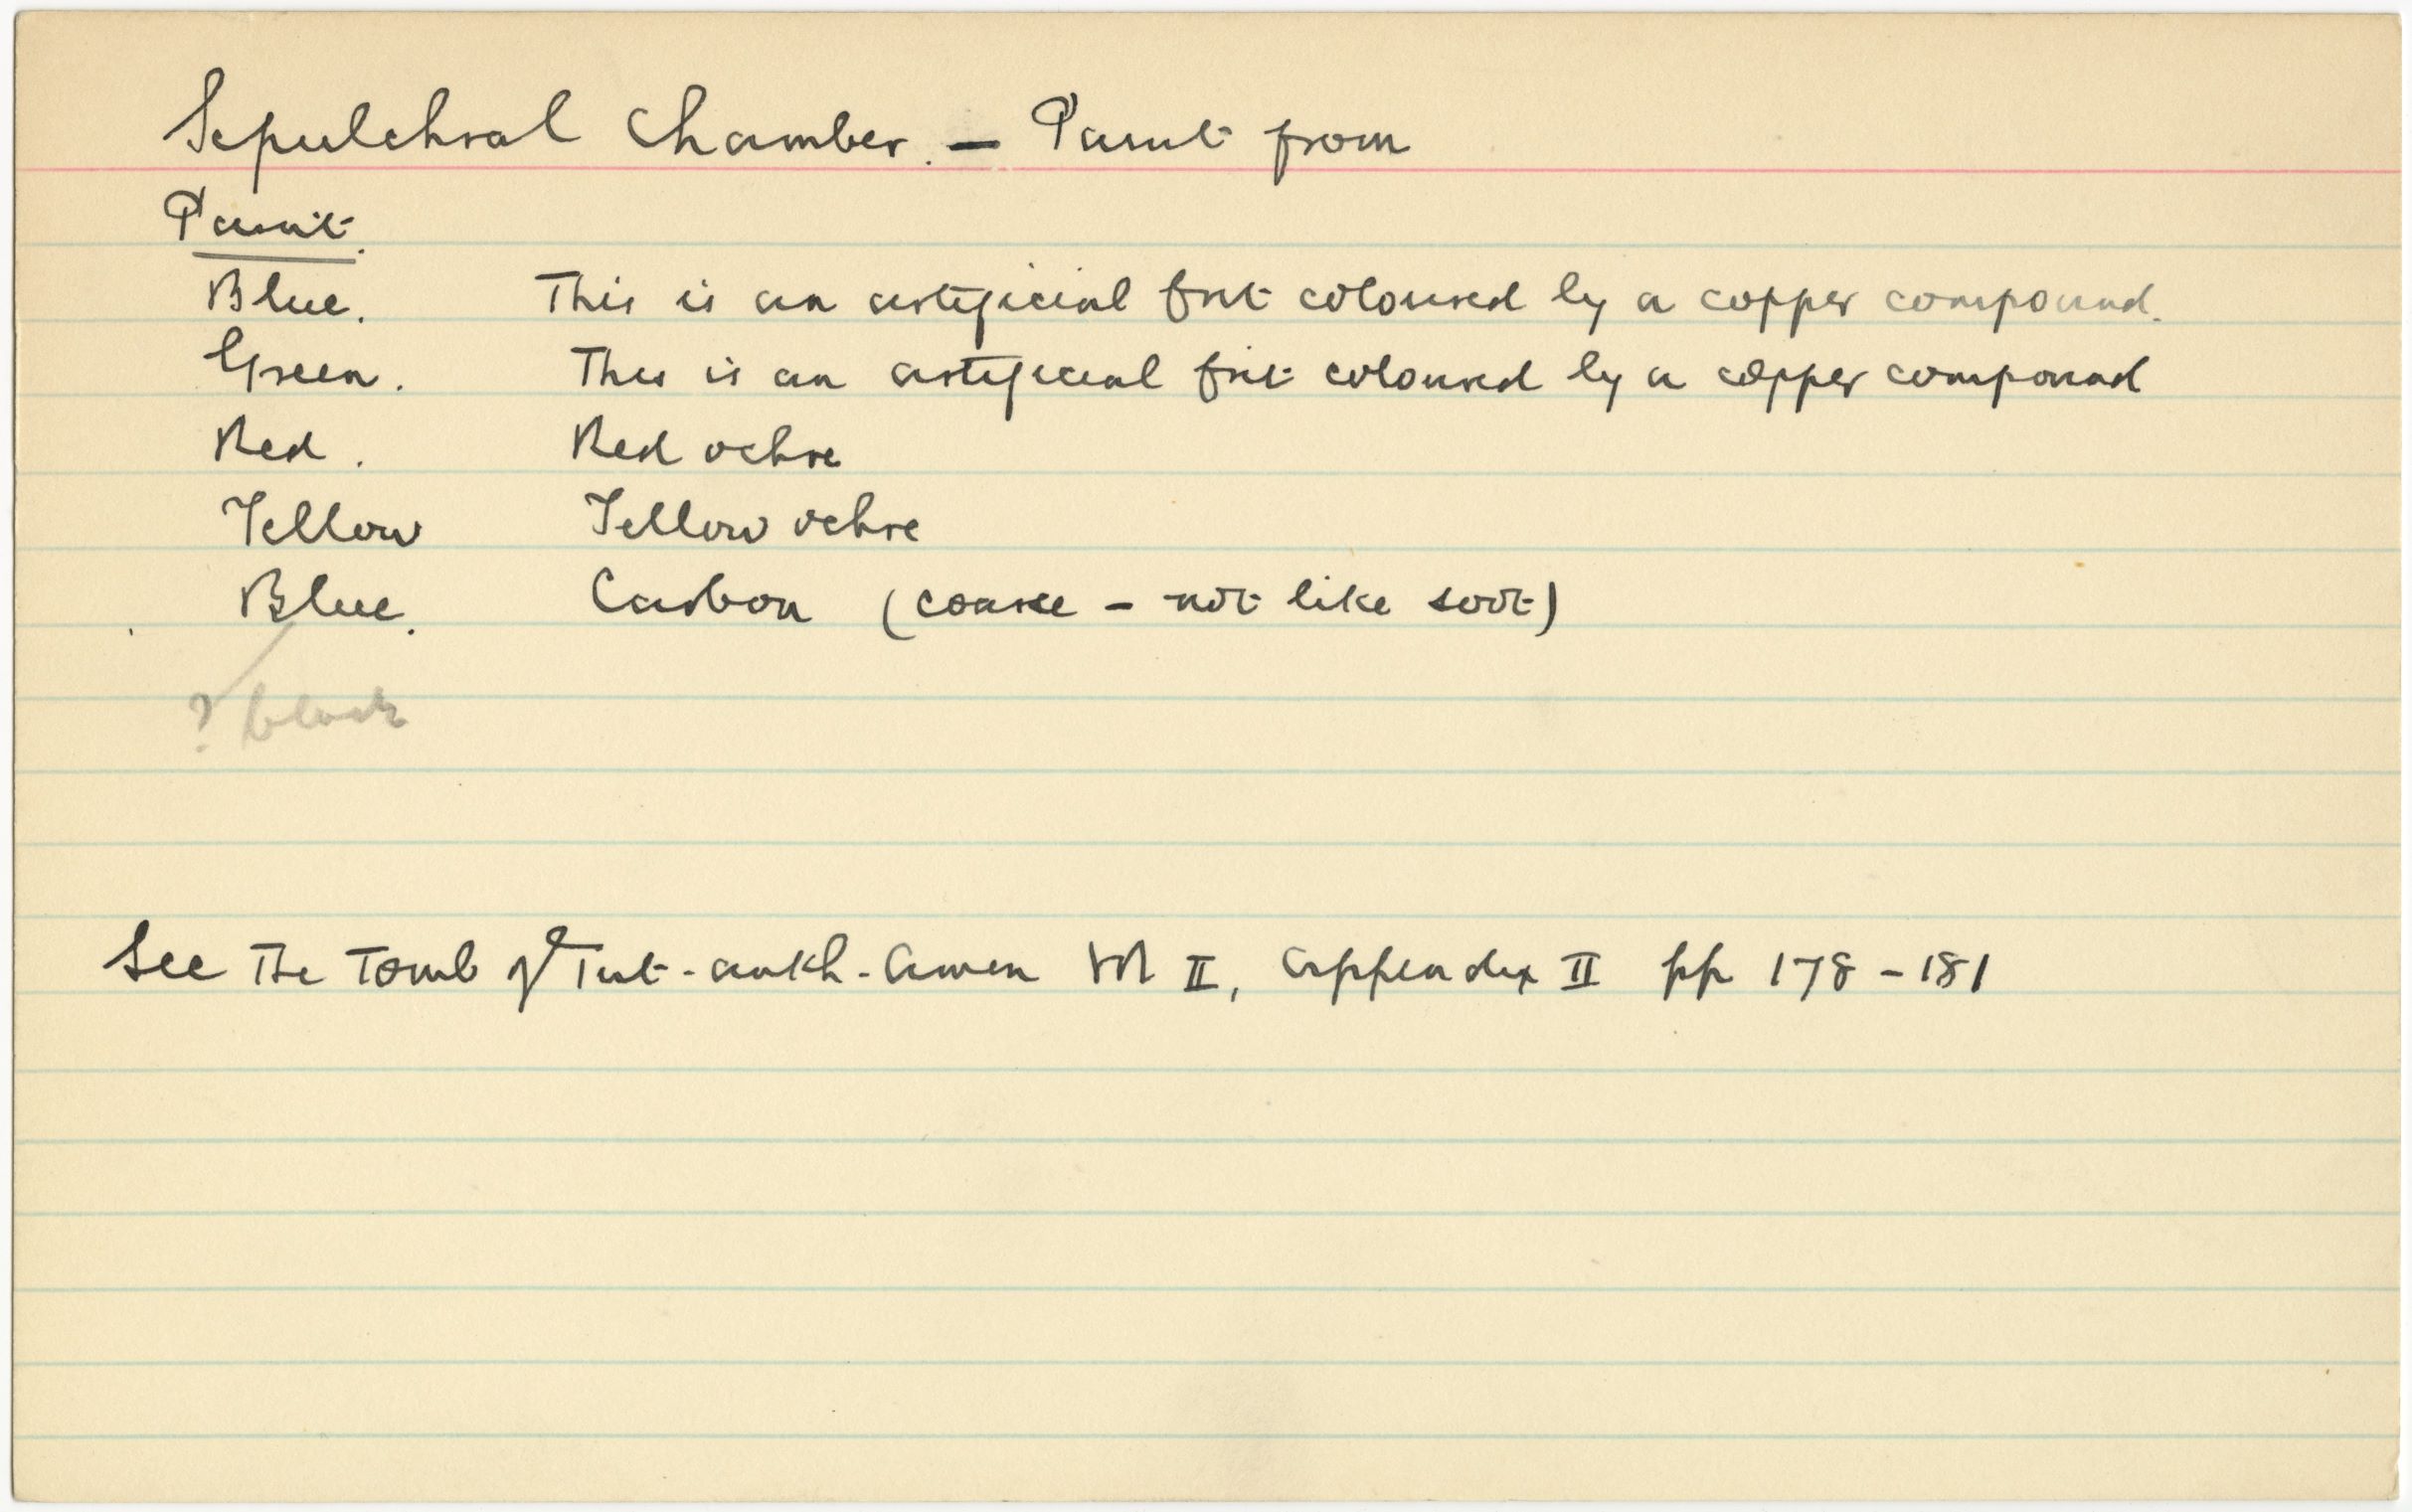 Sepulchral Chamber. — Paint from
Paint.
Blue. This is an artificial frit coloured by a copper compound.
Green. This is an artificial frit coloured by a copper compound
Red. Red ochre
Yellow Yellow ochre
Blue. Carbon (coarse - not like soot)
? black
See The Tomb of Tut-ankh-Amen Vol II, Appendix II pp 178-181